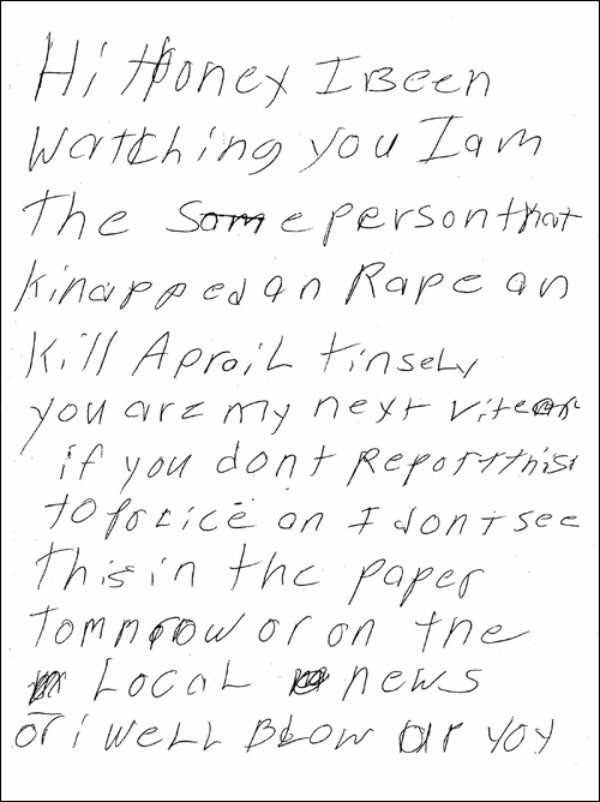 Hi Honey I Been
Watching you I am
the Same person that
kinapped an Rape an
Kill Aproil tinsely
you are my next
if you dont Report this
to police an I dont see
this in the paper
tomnrow or on the
Local news
or i well Blow